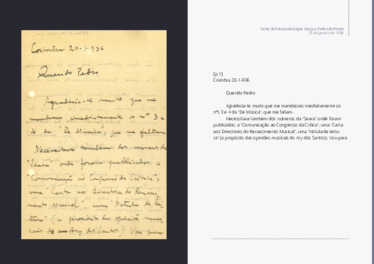 Coimbra 20-1-936
Querido Pedro
Agradecia-te muito que me
mandasses imediatamente os nºs 3 e
4 da "De Música", que me faltam.
Necessitava também dos números da
"Seara" onde foram publicados: a
"Comunicação ao Congresso da Crítica",
uma "Carta aos Directores do Renasci-
mento Musical", uma
(a propósito das opiniões musi-
cais do Ary dos Santos). Vou para
[p.1]
Coimbra 20-1-936
Querido Pedro
Agradecia-te muito que me mandasses imediatamente os
nºs 3 e 4 da "De Música", que me faltam.
Necessitava também dos números da "Seara" onde foram
publicados: a "Comunicação ao Congresso da Crítica", uma "Carta
aos Directores do Renascimento Musical", uma
(a propósito das opiniões musicais do Ary dos Santos). Vou para